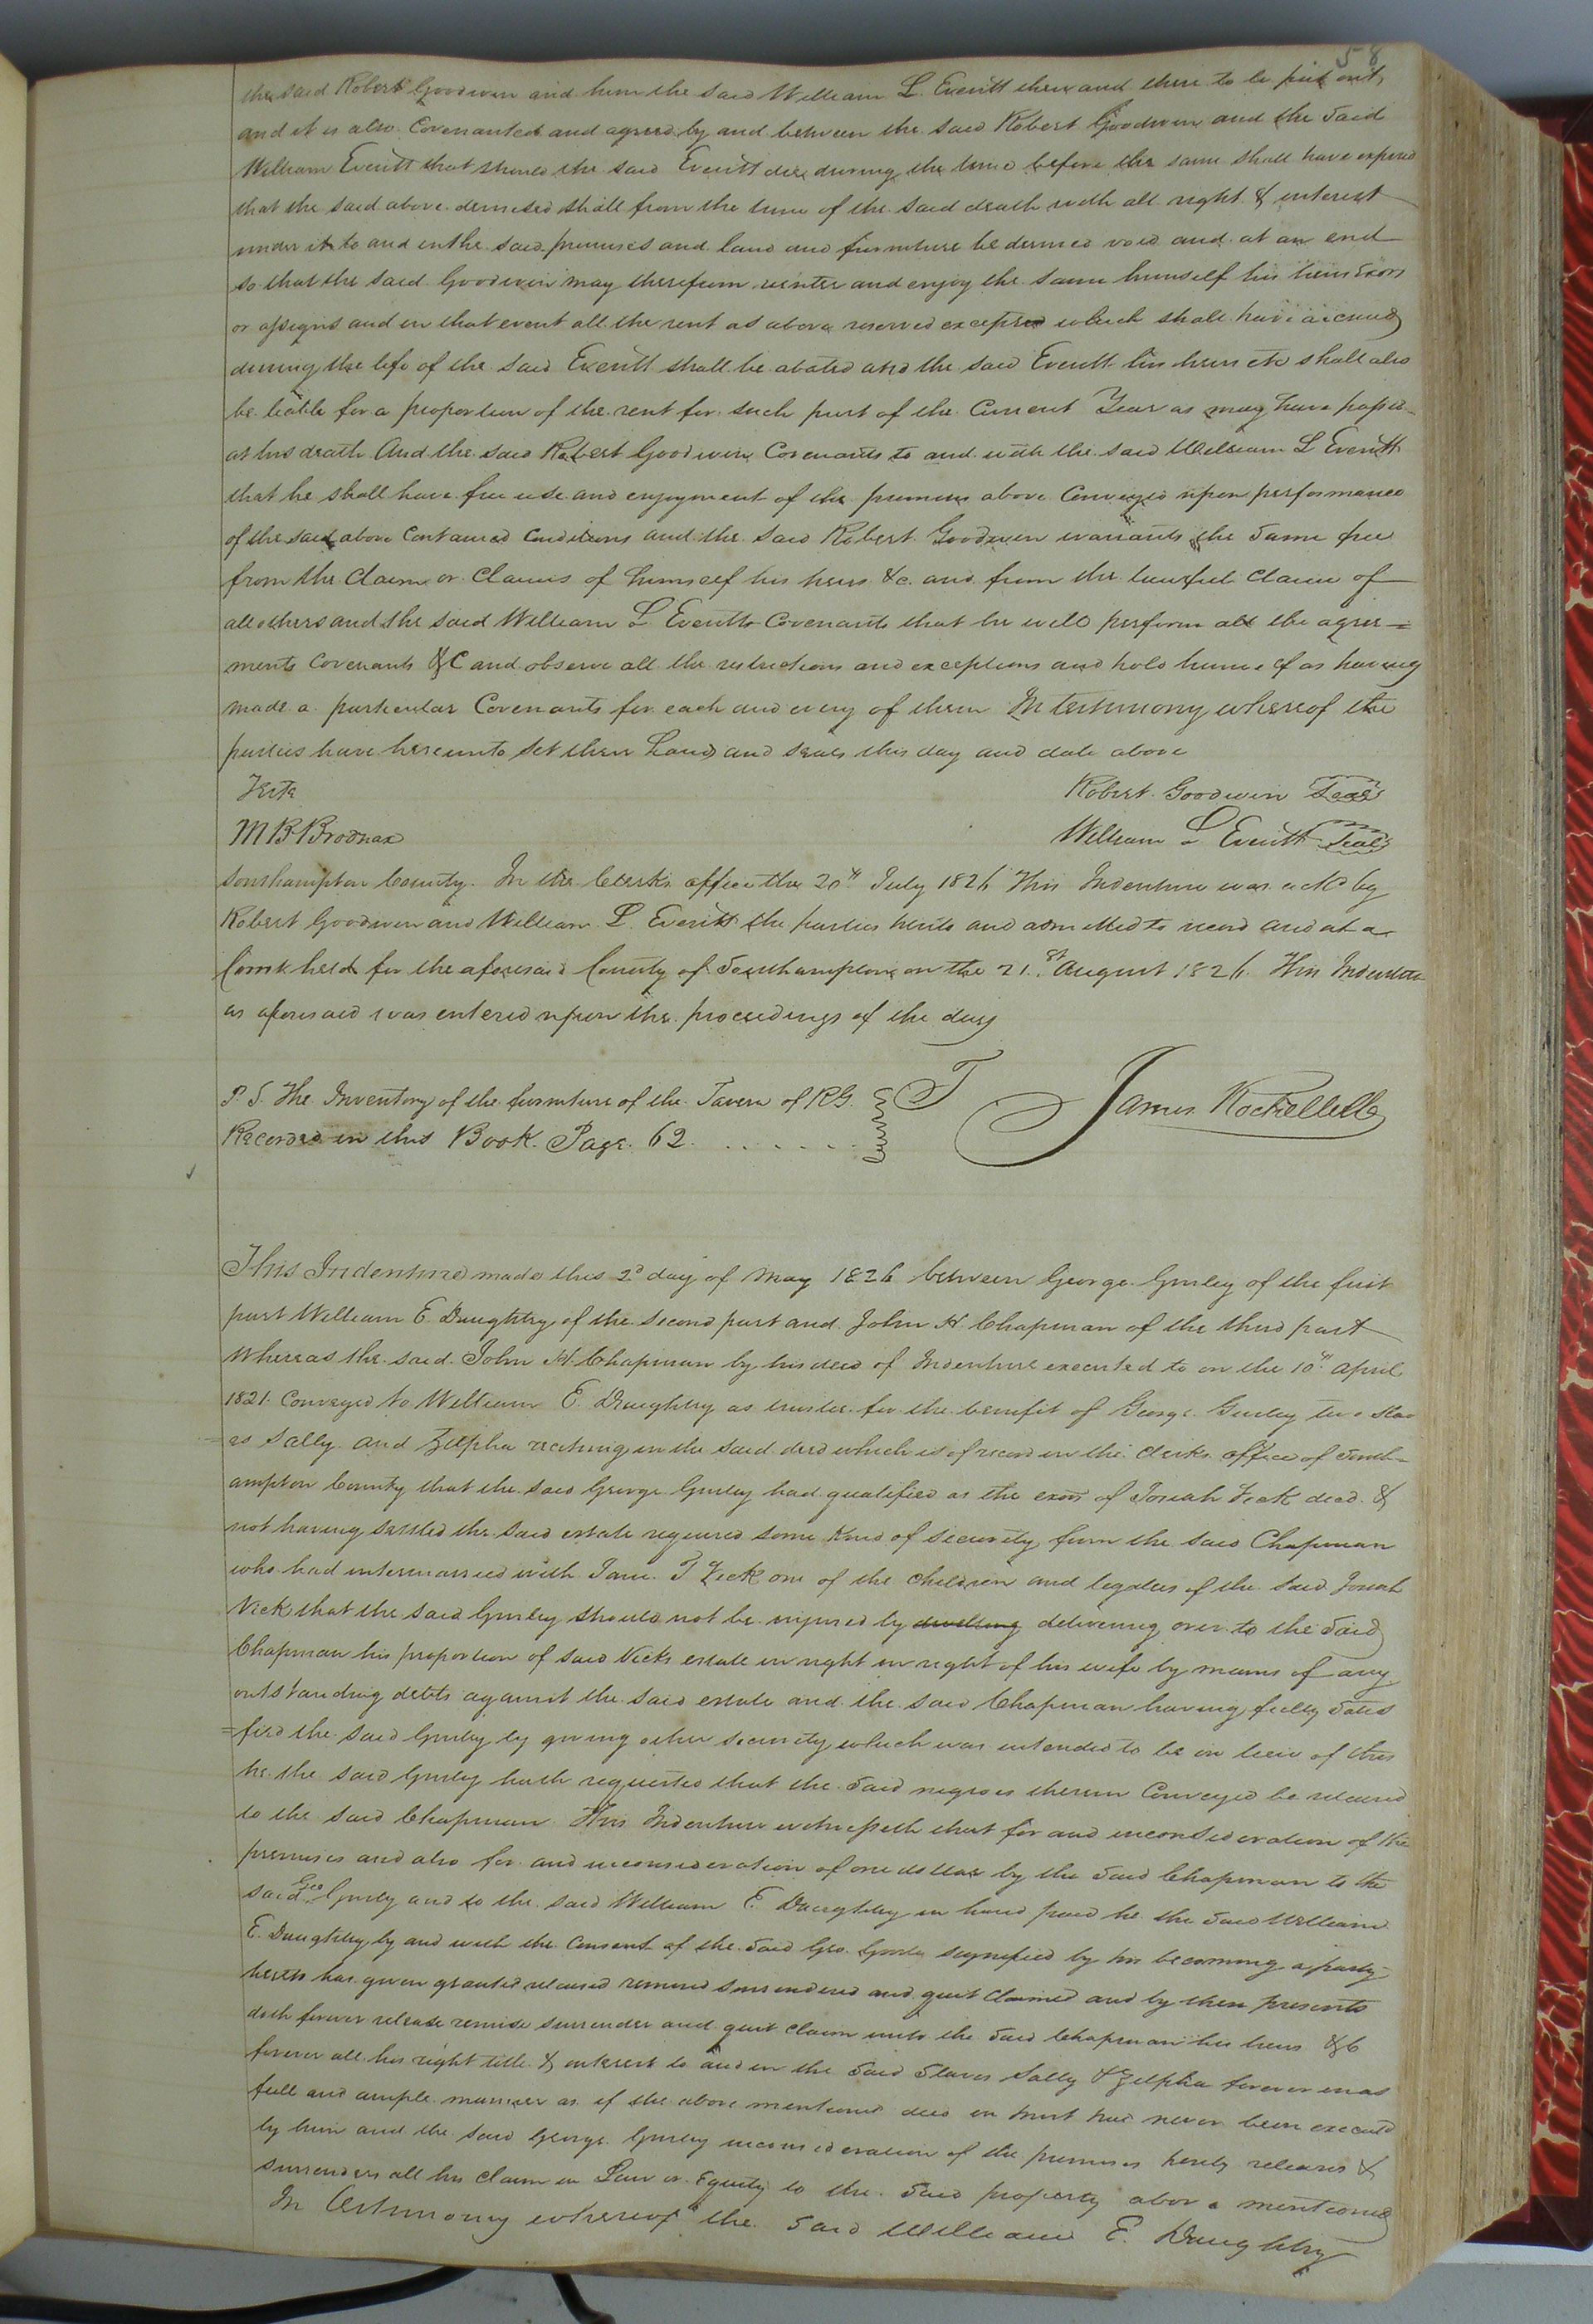 58
the said Robert Goodwin and him the said William L. Everitt then and there to be put out,
and it is also Covenanted and agreed by and between the said Robert Goodwin and the Said
William Everitt that should the said Everitt die during the time before the same shall have expired
that the said above demised shall from the time of the said death with all right & interest
under it to and in the said premises and land and furniture be deemed void and at an end
so that the said Goodwin may therefrom reinter and enjoy the same himself his heirs Exors
or assigns and in that event all the rent as above reserved except which shall have accrued
during the life of the said Everitt shall be abated and the said Everitt his heirs etc shall also
be liable for a proportion of the rent for such part of the Current Year as may have passed
at his death And the said Robert Goodwin Covenants to and with the said William L Everitt
that he shall have free use and enjoyment of the premises above Conveyed upon performance
of the said above Contained Conditions and the said Robert Goodwin warrants the Same free
from the Claim or Claims of himself his heirs &c. and from the lawful Claim of
all others and the said William L Everitt Covenants that he will perform all the agree=
ments Covenants &C and observe all the restrictions and exceptions and hold himself as having
made a particular Covenants for each and every of them In testimony whereof the
parties have hereunto set their hands and seals this day and date above
Teste Robert Goodwin Seal
M B Brodnax William L Everitt Seal
Southampton County. In the Clerks office the 20th July 1826 This Indenture was ackd by
Robert Goodwin and William L. Everitt the parties hereto and admitted to record and at a
Court held for the aforesaid County of Southampton on the 21.st August 1826. This Indenture
as aforesaid was entered upon the proceedings of the day
P. S. The Inventory of the furniture of the Tavern of RG. T James Rochelle Clk
Recorded in this Book Page 62 . . . . . .
This Indenture made this 2d day of May 1826 between George Gurley of the first
part William E Daughtry of the Second part and John H Chapman of the third part
Whereas the said John H Chapman by his deed of Indenture executed to on the 10th April
1821. Conveyed to William E. Daughtry as trustee for the benefit of George Gurley two slav
es Sally and Zilpha reciting in the said deed which is of record in the Clerks office of South=
ampton County that the said George Gurley had qualified as the exor of Josiah Vick decd. &
not having settled the said estate required some kind of security from the said Chapman
who had intermarried with Jane T Vick one of the children and legatees of the said Josiah
Vick that the said Gurley should not be injured by dwelling delivering over to the Said
Chapman his proportion of said Vicks estate in right in right of his wife by means of any
outstanding debts against the said estate and the said Chapman having fully Satis
=fied the said Gurley by giving other security which was intended to be in lieu of this
he the said Gurley hath requested that the Said negroes therein Conveyed be released
to the said Chapman This Indenture witnesseth that for and inconsideration of the
premises and also for and inconsideration of one dollar by the Said Chapman to the
said Geo Gurley and to the said William E. Daughtry in hand paid he the Said William
E. Daughtry by and with the Consent of the Said Geo. Gurley signified by his becoming a party
hereto has given granted released remised surrendered and quit Claimed and by these presents
doth forever release remise surrender and quit claim unto the Said Chapman his heirs &c
forever all his right title & interest to and in the Said Slaves Sally & Zilpha forever in as
full and ample manner as if the above mentioned deed in trust had never been executed
by him and the said George Gurley inconsideration of the premises hereby releases &
surrenders all his claim in Law or Equity to the Said property above mentioned
In testimony whereof the Said William E. Daughtry